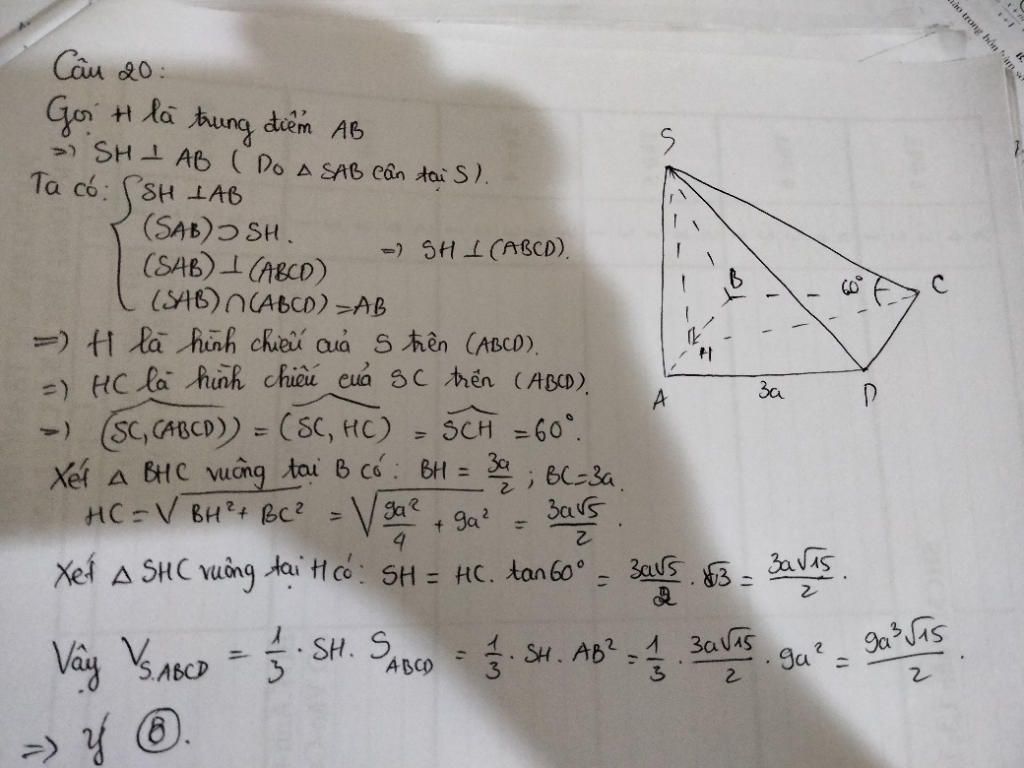 Câu 20:
Gọi H là trung điểm AB
=> SH ⊥ AB (Do △ SAB cân tại S).
Ta có: { SH ⊥ AB
(SAB) ⊃ SH.
(SAB) ⊥ (ABCD) => SH ⊥ (ABCD).
(SAB) ∩ (ABCD) = AB
=> H là hình chiếu của S trên (ABCD).
=> HC là hình chiếu của SC trên (ABCD).
=> (SC, (ABCD)) = (SC, HC) = SCH = 60°.
Xét △ BHC vuông tại B có: BH = 3a/2 ; BC = 3a.
HC = √(BH² + BC²) = √(9a²/4 + 9a²) = 3a√5/2.
Xét △ SHC vuông tại H có: SH = HC. tan60° = 3a√5/2 . √3 = 3a√15/2.
Vậy V_S.ABCD = 1/3 . SH. S_ABCD = 1/3 . SH. AB² = 1/3 . 3a√15/2 . 9a² = 9a³√15/2.
=> Ý Ⓑ.
S
B
60°
C
H
A
3a
D